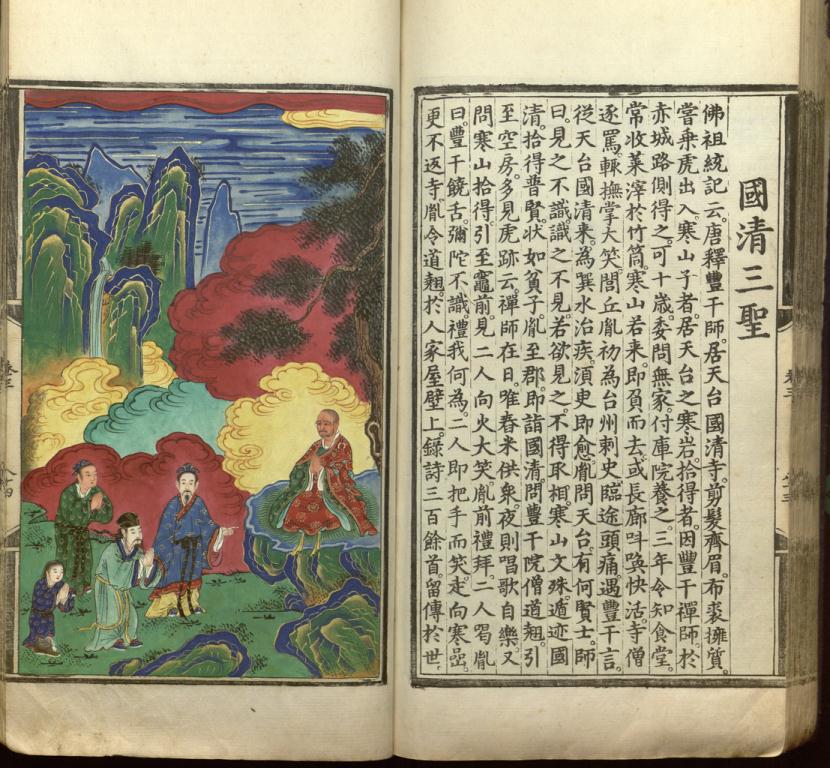 國清三聖
佛祖統記云。唐釋豐干師。居天台國清寺。剪髮齊眉。布裘擁質。
嘗乘虎出入。寒山子者。居天台之寒岩。拾得者。因豐干禪師。於
赤城路側得之。可十歲。委問無家。付庫院養之。三年。令知食堂。
常收菜滓於竹筒。寒山若來。即負而去。或長廊呌喚快活。寺僧
逐罵。輒撫掌大笑。閭丘胤初為台州刺史。臨途頭痛。遇豐干言。
從天台國清來。為噀水治疾。須臾即愈。胤問天台有何賢士。師
曰。見之不識。識之不見。若欲見之。不得取相。寒山文殊。遁迹國
清。拾得普賢。狀如貧子。胤至郡。即詣國清。問豐干院。僧道翹。引
至空房。多見虎跡。云。禪師在日。唯舂米供衆。夜則唱歌自樂。又
問寒山拾得。引至竈前。見二人向火大笑。胤前禮拜。二人咄胤
曰。豐干饒舌。彌陀不識。禮我何為。二人即把手而笑。走向寒嵒。
更不返寺。胤令道翹。於人家屋壁上。錄詩三百餘首。留傳於世。